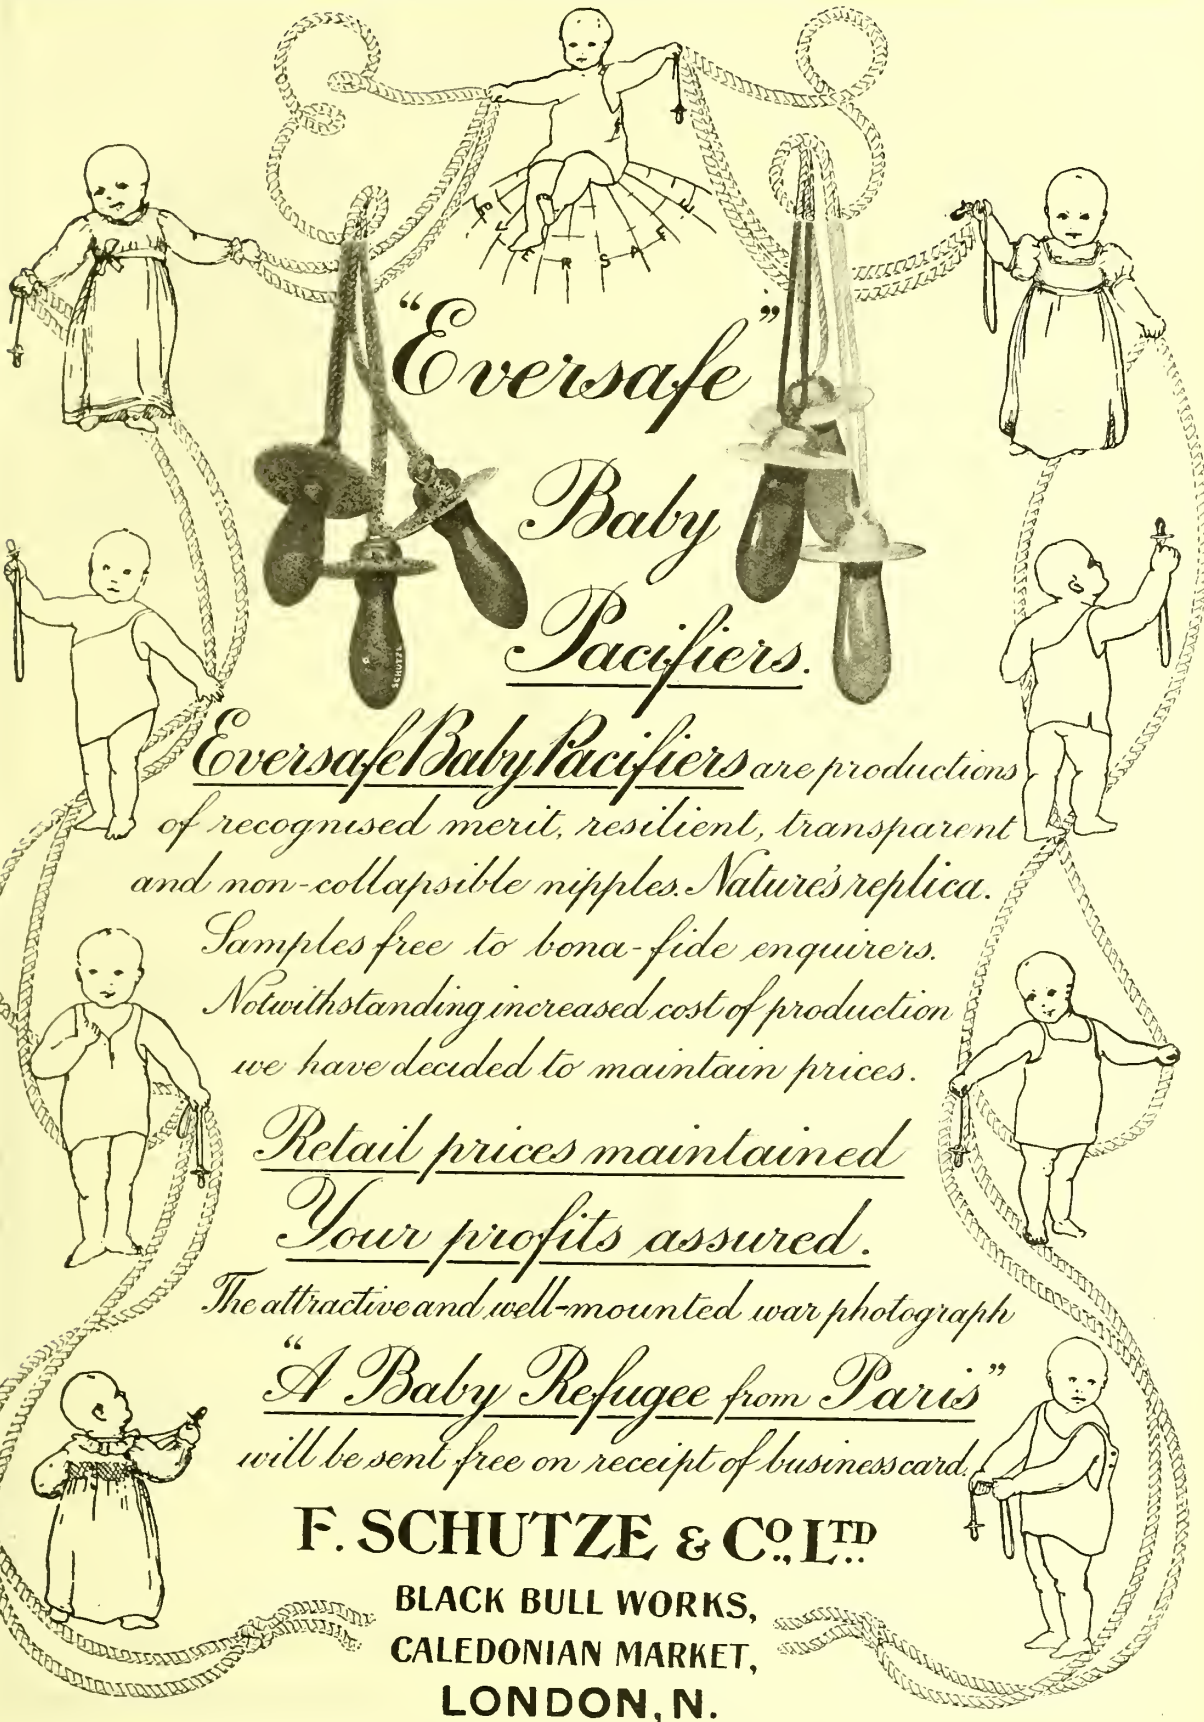 EVERSAFE
“Eversafe”
Baby
Pacifiers.
SCHUTZE
Eversafe Baby Pacifiers are productions
of recognised merit, resilient, transparent
and non-collapsible nipples. Nature's replica.
Samples free to bona-fide enquirers.
Notwithstanding increased cost of production
we have decided to maintain prices.
Retail prices maintained
Your profits assured.
The attractive and well-mounted war photograph
“A Baby Refugee from Paris”
will be sent free on receipt of business card.
F. SCHUTZE & Co., LTD.
BLACK BULL WORKS,
CALEDONIAN MARKET,
LONDON, N.